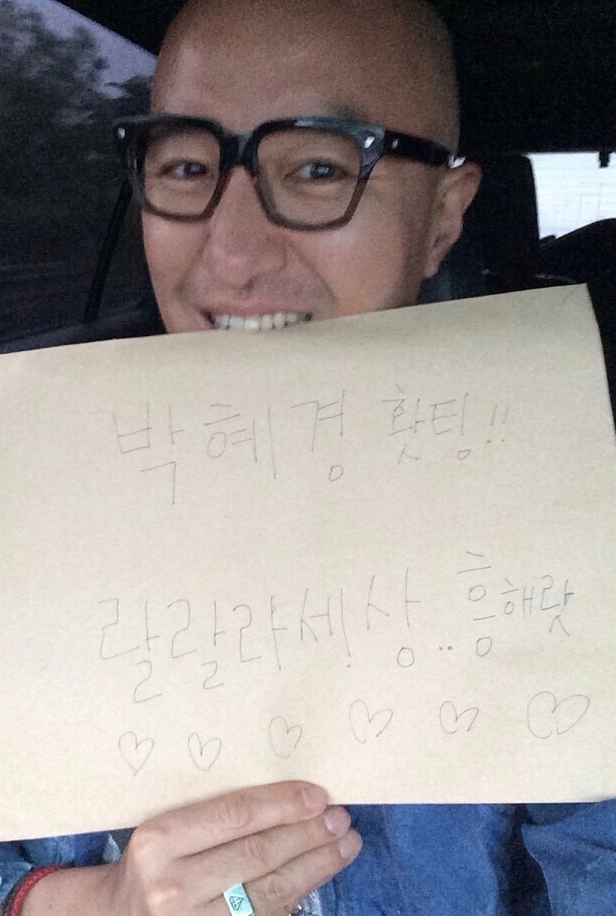 박혜경 홧팅!!
랄랄라세상.. 흥해랏